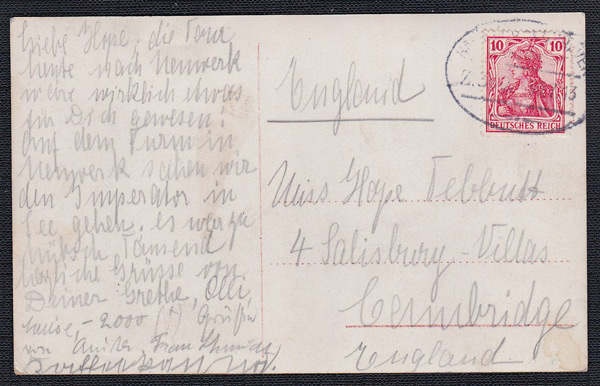 Liebe Hope, die Tour
heute nach Neuwerk
wäre wirklich etwas
für Dich gewesen.
Auf dem Turm in
Neuwerk sahen wir
den Imperator in
See gehen. es war zu
hübsch Tausend
herzliche Grüsse von
Deiner Grethe, Olli,
-2000 Grüße
von Frau Schmidt
England
Miss Hope Tebbutt
4 Salisbury-Villas
Cambridge
England
10 10
DEUTSCHES REICH